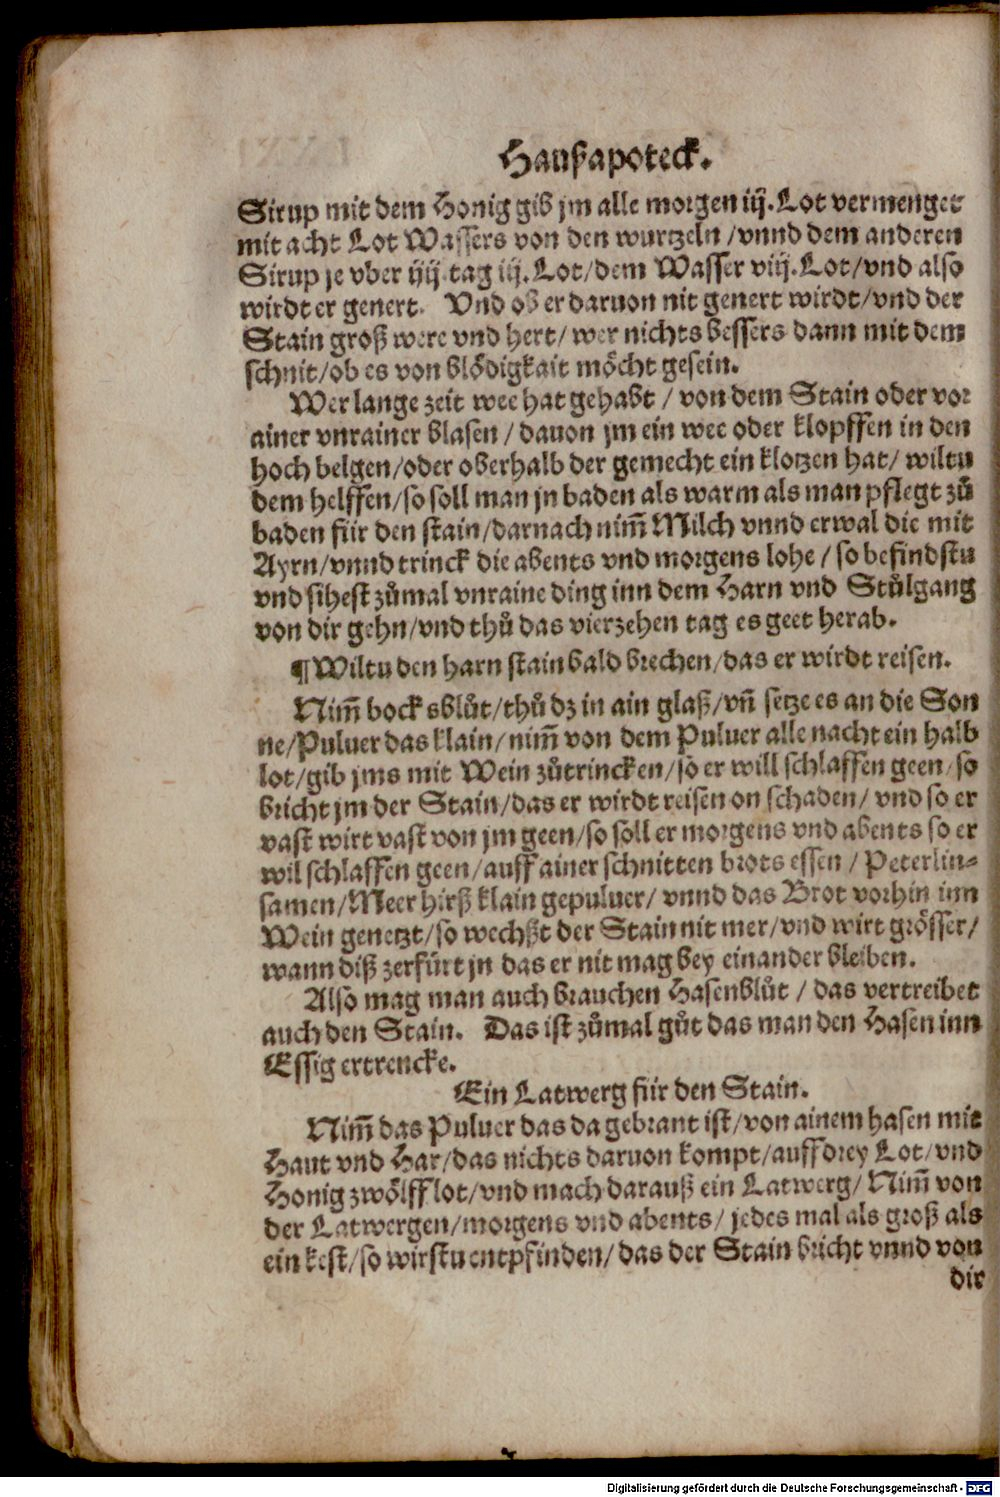 Haußapoteck.
Sirup mit dem Honig gib jm alle morgen iij. Lot vermenget
mit acht Lot Wassers von den wurtzeln / vnnd dem anderen
Sirup je vber iij. tag iij. Lot / dem Wasser viij. Lot / vnd also
wirdt er genert. Vnd ob er daruon nit genert wirdt / vnd der
Stain groß were vnd hert / wer nichts bessers dann mit dem
schnit / ob es von blödigkait möcht gesein.
Wer lange zeit wee hat gehabt / von dem Stain oder vor
ainer vnrainer blasen / dauon jm ein wee oder klopffen in den
hoch belgen / oder oberhalb der gemecht ein klotzen hat / wiltu
dem helffen / so soll man jn baden als warm als man pflegt zů
baden für den stain / darnach nim̃ Milch vnnd erwal die mit
Ayrn / vnnd trinck die abents vnd morgens lohe / so befindstu
vnd sihest zůmal vnraine ding inn dem Harn vnd Stůlgang
von dir gehn / vnd thů das vierzehen tag es geet herab.
¶ Wiltu den harn stain bald brechen / das er wirdt reisen.
Nim̃ bocksblůt / thů dz in ain glaß / vñ setze es an die Son
ne / Puluer das klain / nim̃ von dem Puluer alle nacht ein halb
lot / gib jms mit Wein zůtrincken / so er will schlaffen geen / so
bricht jm der Stain / das er wirdt reisen on schaden / vnd so er
vast wirt vast von jm geen / so soll er morgens vnd abents so er
wil schlaffen geen / auff ainer schnitten brots essen / Peterlin-
samen / Meer hirß klain gepuluer / vnnd das Brot vorhin inn
Wein genetzt / so wechßt der Stain nit mer / vnd wirt grösser /
wann diß zerfürt jn das er nit mag bey einander bleiben.
Also mag man auch brauchen Hasenblůt / das vertreibet
auch den Stain. Das ist zůmal gůt das man den Hasen inn
Essig ertrencke.
Ein Latwerg für den Stain.
Nim̃ das Puluer das da gebrant ist / von ainem hasen mit
Haut vnd Har / das nichts daruon kompt / auff drey Lot / vnd
Honig zwölff lot / vnd mach darauß ein Latwerg / Nim̃ von
der Latwergen / morgens vnd abents / jedes mal als groß als
ein kest / so wirstu entpfinden / das der Stain bricht vnnd von
dir
Digitalisierung gefördert durch die Deutsche Forschungsgemeinschaft - DFG